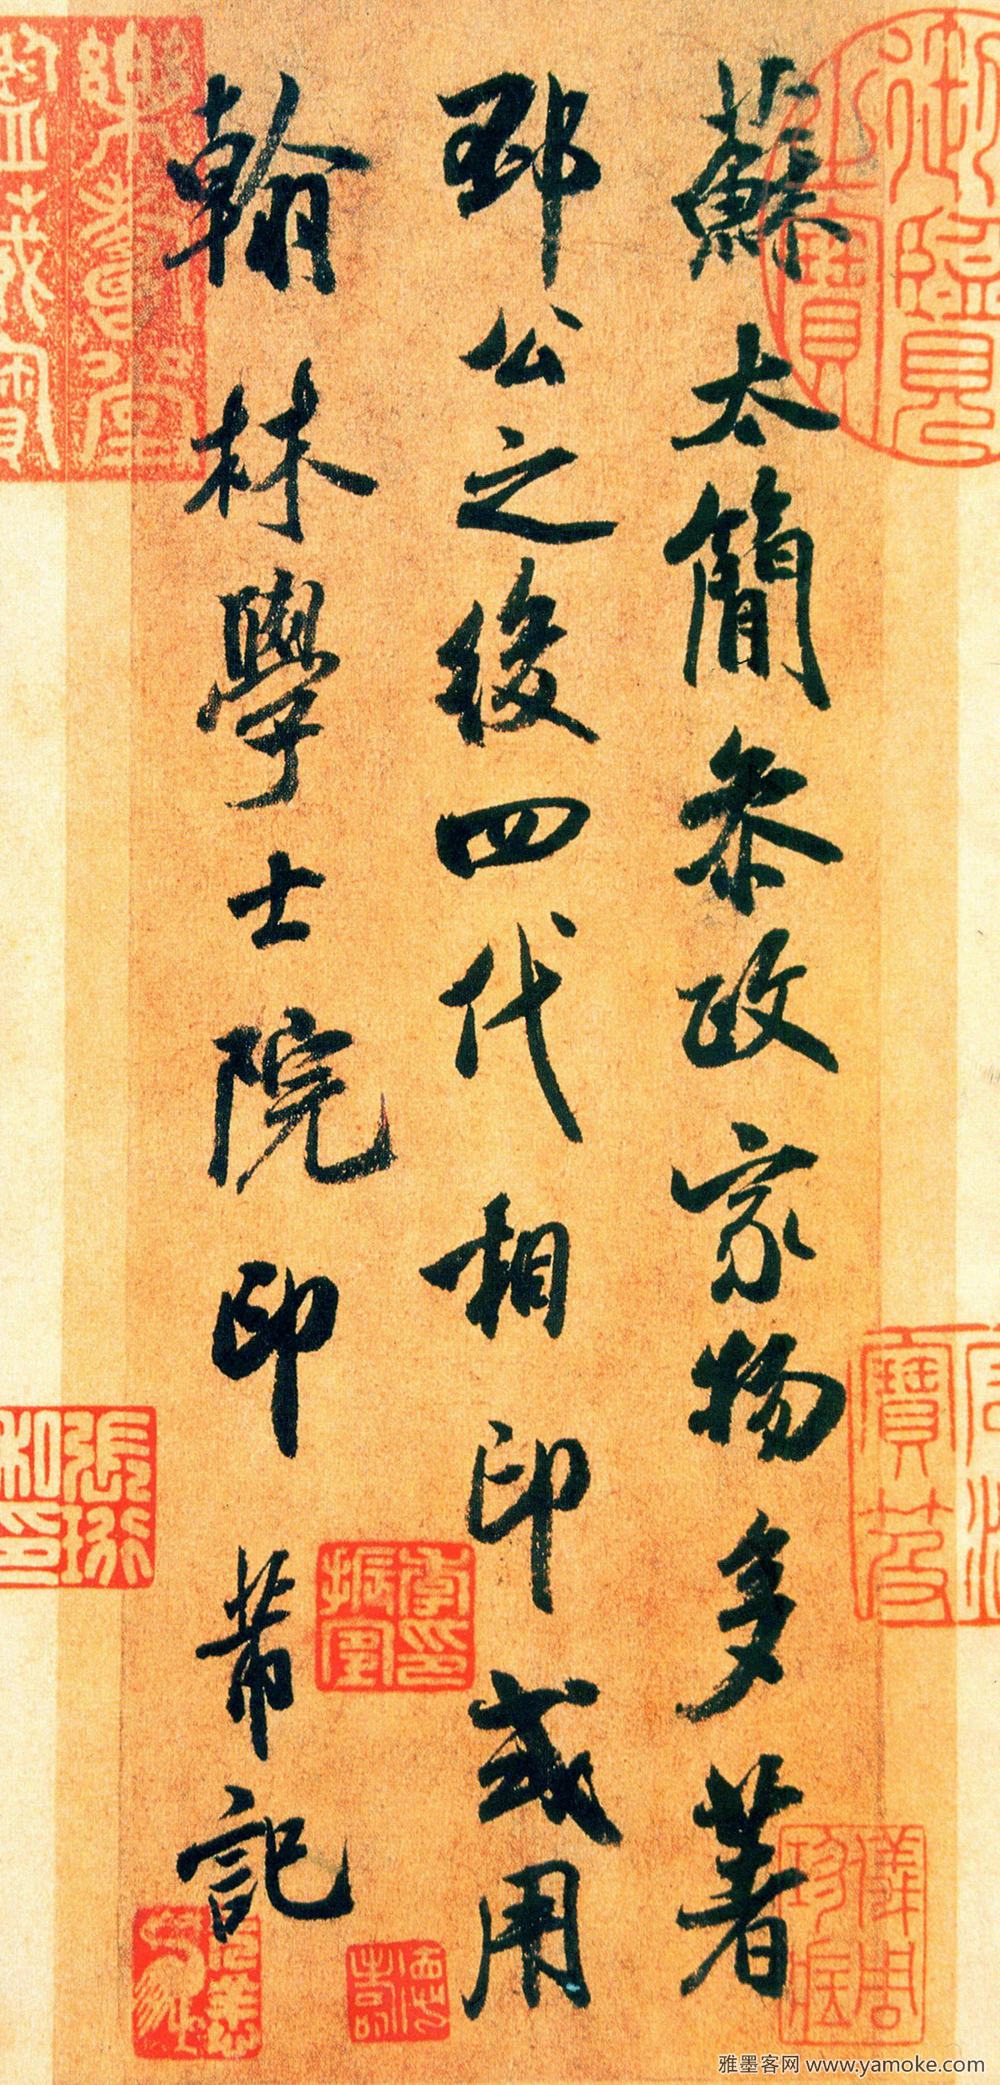 蘇太簡参政家物多著
邳公之後四代相印或用
翰林學士院印芾記
雅墨客网 www.yamoke.com